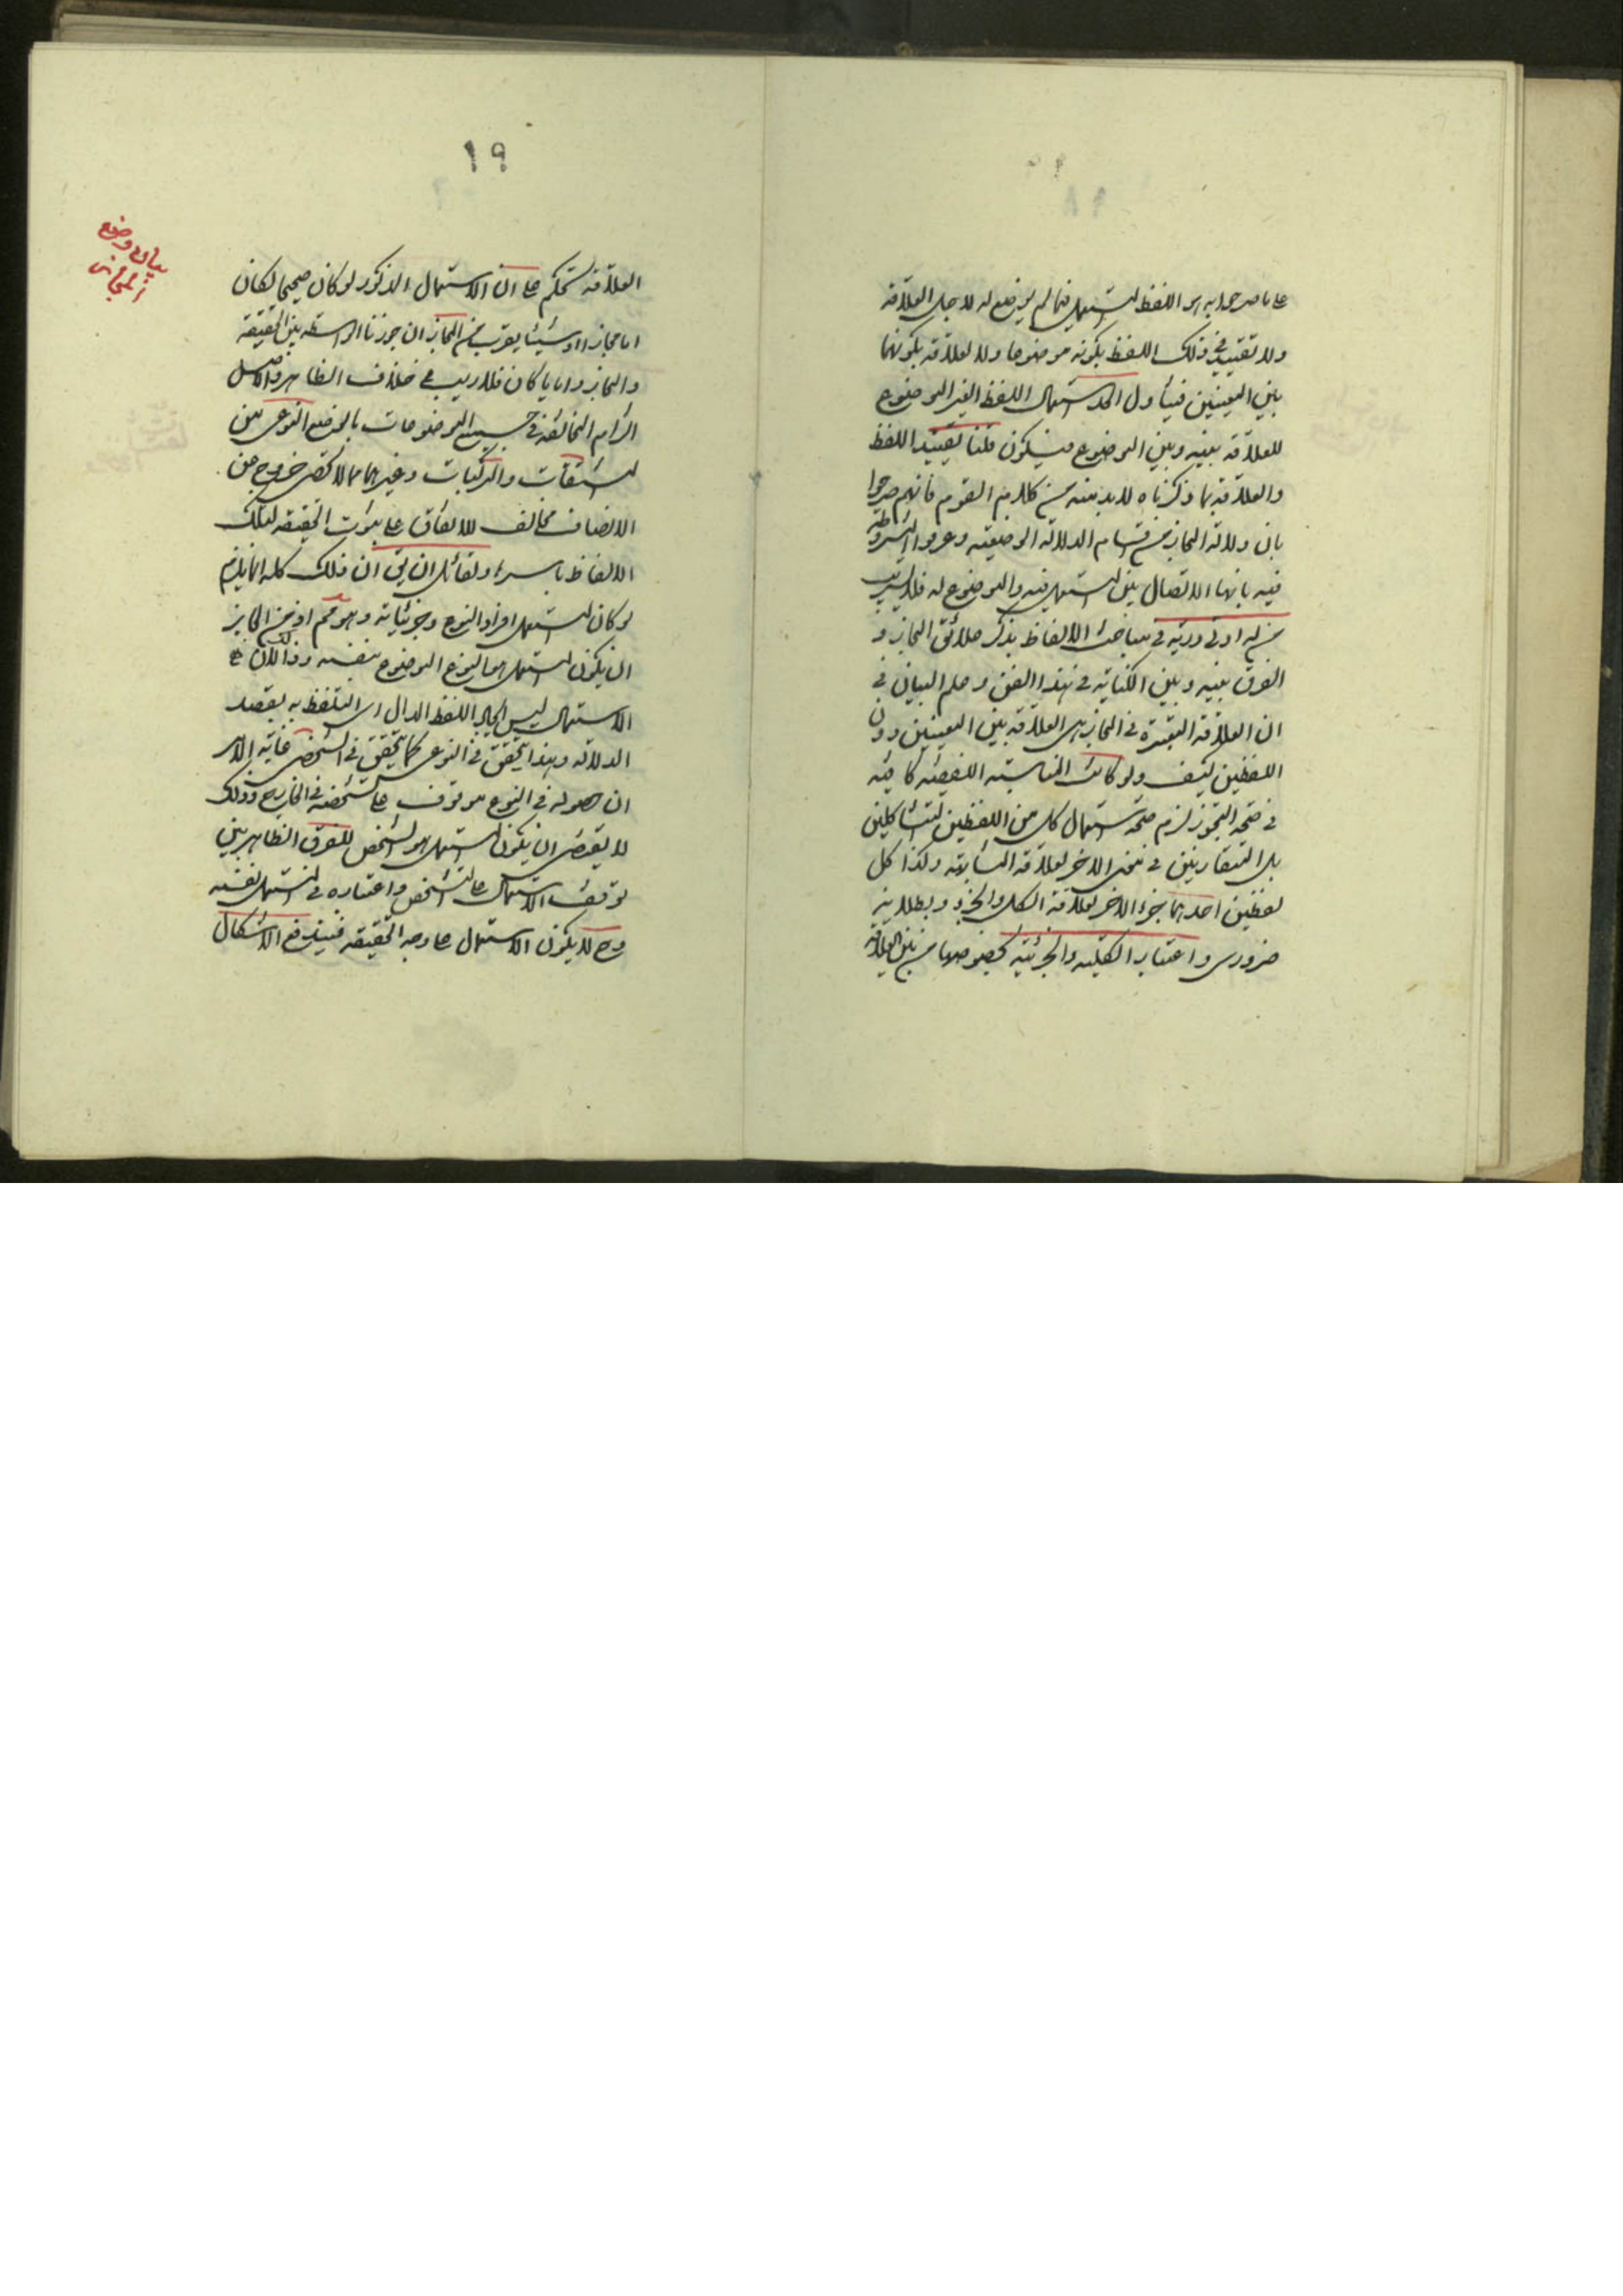 على ما صرحوا به هو اللفظ المستعمل فيما لم يوضع له لاجل العلاقة
ولا تقييد في ذلك اللفظ بكونه موضوعا ولا لعلاقة بكونهما
بين المعنيين فيتناول الحد استعمال اللفظ الغير الموضوع
للعلاقة بينه وبين الموضوع فيكون قلنا تقييد اللفظ
والعلاقة بما ذكرناه لا بد منه من كلام القوم فانهم صرحوا
بان دلالة المجاز من اقسام الدلالة الوضعية وعرفوا
فيه بانها الاتصال بين المستعمل فيه والموضوع له فلا يريب
من له ادنى دربة في مباحث الالفاظ بذكر علائق المجاز و
الفرق بينه وبين الكناية في هذا الفن وعلم البيان في
ان العلاقة المعتبرة في المجاز هي العلاقة بين المعنيين دون
اللفظين كيف ولو كانت المناسبة اللفظية كافية
في صحة التجوز لزم صحة استعمال كل من اللفظين المتشاكلين
بل المتقاربين في معنى الاخر لعلاقة المشابهة ولكذا كل
لفظين احدهما جزء الاخر لعلاقة الكل والجزء وبطلانه
ضروري واعتبار الكلية والجزئية بخصوصها من بين العلاقة
١٩
بيان وضع
المجاز
العلاقة تحكم على ان الاستعمال المذكور لو كان صحيحا لكان
اما مجازا او شيئا يقرب من المجاز ان جوزنا الواسطة بين الحقيقة
والمجاز واياما كان فلا ريب في خلاف الظاهر والاصل
التزام المخالفة في جميع الموضوعات بالوضع النوعي من
المشتقات والمركبات وغيرهما مما لا تحصى خروج عن
الانصاف مخالف للاتفاق على ثبوت الحقيقة لتلك
الالفاظ باسرها ولقائل ان يق ان ذلك كله انما يلزم
لو كان المستعمل افراد النوع وجزئياته وهو مم اذ من الجايز
ان يكون المستعمل هو النوع الموضوع بنفسه وذلك لان
الاستعمال ليس الا اللفظ الدال اى التلفظ به بقصد
الدلالة وهذا يتحقق في النوعي كما يتحقق في الشخصي غاية الامر
ان حصوله في النوع موقوف على تشخصه في الخارج وذلك
لا يقتضى ان يكون المستعمل هو الشخص للفرق الظاهر بين
توقف الاستعمال على التشخص واعتباره في المستعمل نفسه
وح لا يكون الاستعمال على وجه الحقيقة فيندفع الاشكال